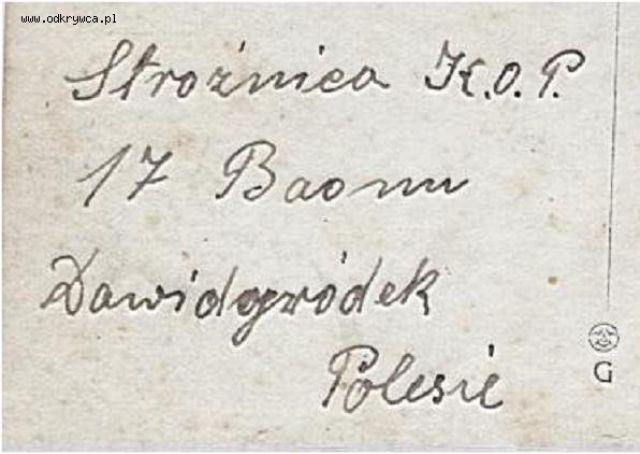 www.odkrywca.pl
Strożnica K.O.P.
17 Baonu
Dawidgródek
Polesie
G